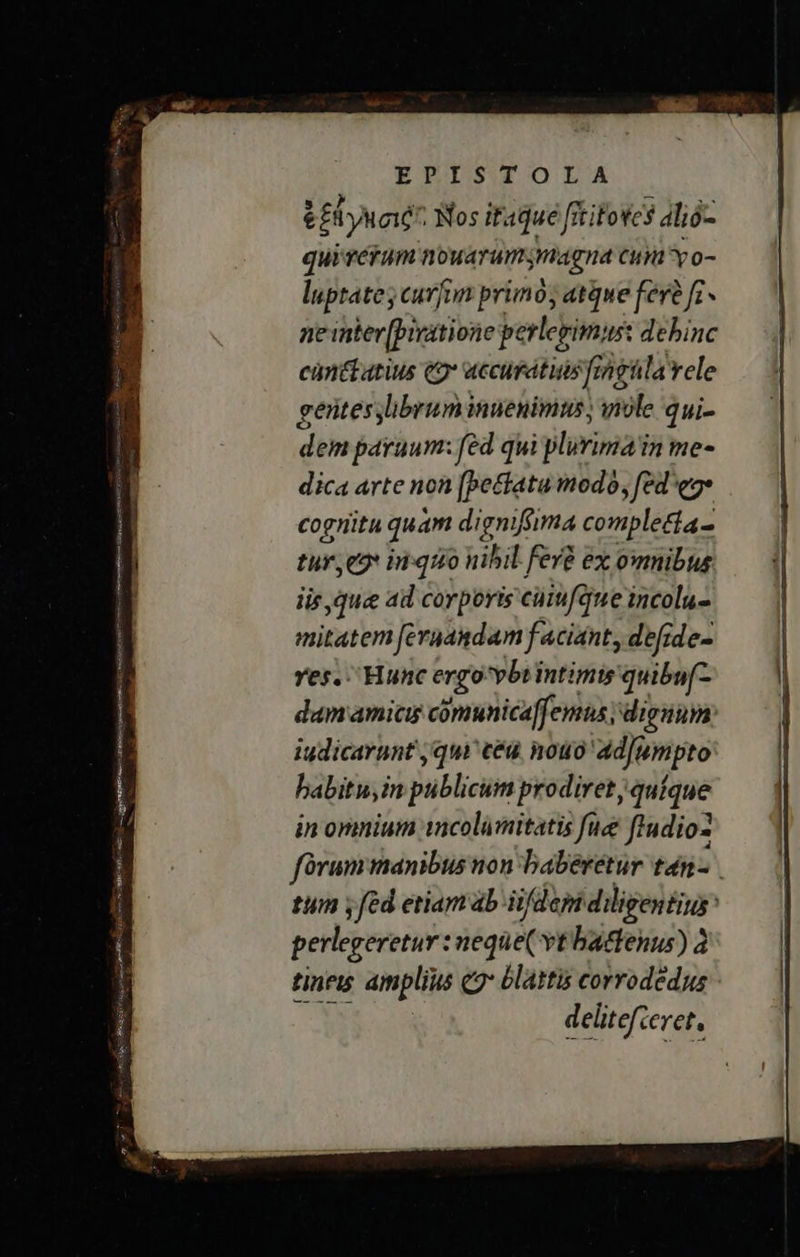 EPISTOLA
ἐξήγησις. Nos itaque ſititores alio-
qui rerum nouarum, magna cum vo-
luptate, curſim primò, atque ferè ſi-
ne interſpiratione perlegimus: dehinc
cunctatius & accuratius ſingula rele
gentes, librum inuenimus, mole qui-
dem paruum: ſed qui plurima in me-
dica arte non ſpectatu modò, ſed &
cognitu quàm digniſſima complecta-
tur, & in quo nihil ferè ex omnibus
iis, quæ ad corporis cuiuſque incolu-
mitatem ſeruandam faciant, deſide-
res. Hunc ergo vbi intimis quibuſ-
dam amicis cōmunicaſſemus, dignum
iudicarunt, qui ceu nouo adſumpto
habitu, in publicum prodiret, quíque
in omnium incolumitatis ſuæ ſtudio-
ſorum manibus non haberetur tan-
tùm, ſed etiam ab iiſdem diligentius
perlegeretur: neque (vt hactenus) à
tineis ampliùs & blattis corrodēdus
deliteſceret.